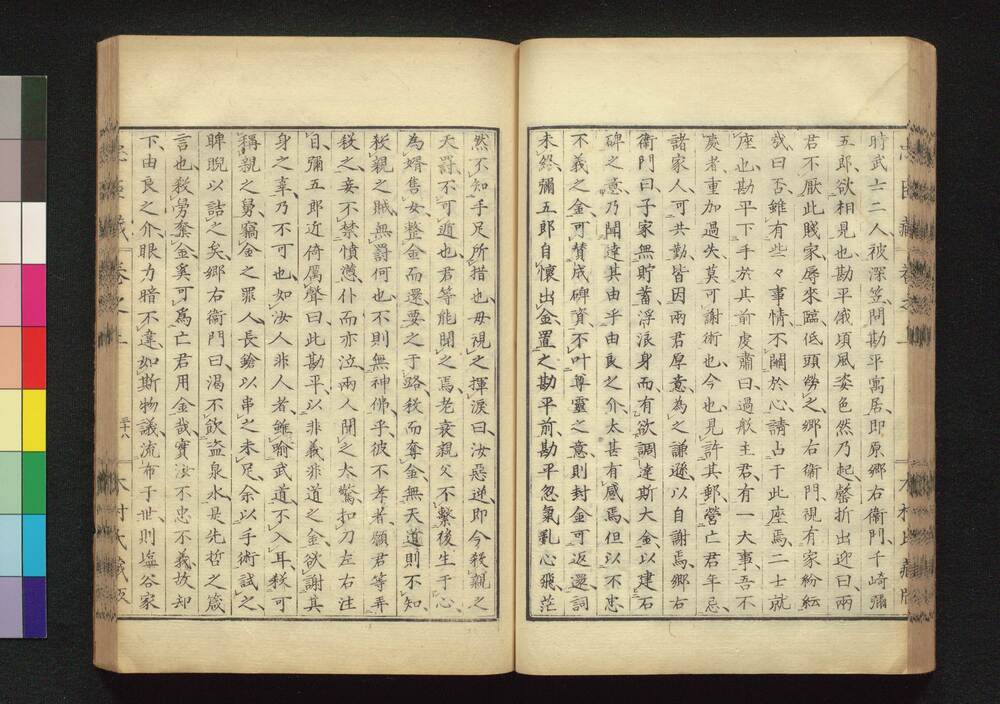 時武士二人被深笠問勘平寓居即原郷右衛門千崎彌
五郎欲相見也勘平俄項風姿色然乃起罄折出迎曰兩
君不厭此賤家辱來臨低頭勞之郷右衛門視有家紛紜
或曰否雖有些々事情不關於心請占于此座焉二士就
座也勘平下手於其前虔肅曰過般主君有一大事吾不
處者重加過失莫可謝術也今也見許其郵營亡君年忌
諸家人可共勤皆因兩君厚意為之謙遜以自謝焉郷右
衛門曰子家無貯蓄浮浪身而有欲調達斯大金以建石
碑之意乃聞達其由乎由良之介太甚有感焉但以不忠
不義之金可賛成碑資不叶尊靈之意則封金可返還詞
未終彌五郎自懷出金置之勘平前勘平忽氣乱心飛茫
然不知手足所措也母視之揮淚曰汝惡逆即今殺親之
天罸不可遁也君等能聞之焉老衰親父不繫後生于心
為婿售女整金而還要之于路殺而奪金無天道則不知
殺親之賊無罸何也不則無神佛乎彼不孝者願君等弄
殺之妾不禁憤懣仆而亦泣兩人聞之大驚扣刀左右注
目彌五郎近倚厲聲曰此勘平以非義非道之金欲謝其
身之辜乃不可也如汝人非人者雖喻武道不入耳殺可
稱親之舅竊金之罪人長鎗以串之未足余以手術試之
睥睨以詰之矣郷右衛門曰渇不飲盗泉水是先哲之箴
言也殺舅奪金奚可為亡君用金哉實汝不忠不義故却
下由良之介眼力暗不違如斯物議流布于世則塩谷家
忠臣藏 卷之上 三十八 木村氏藏版